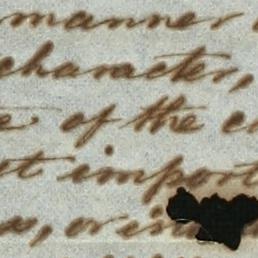 manner
character,
of the
import
or in